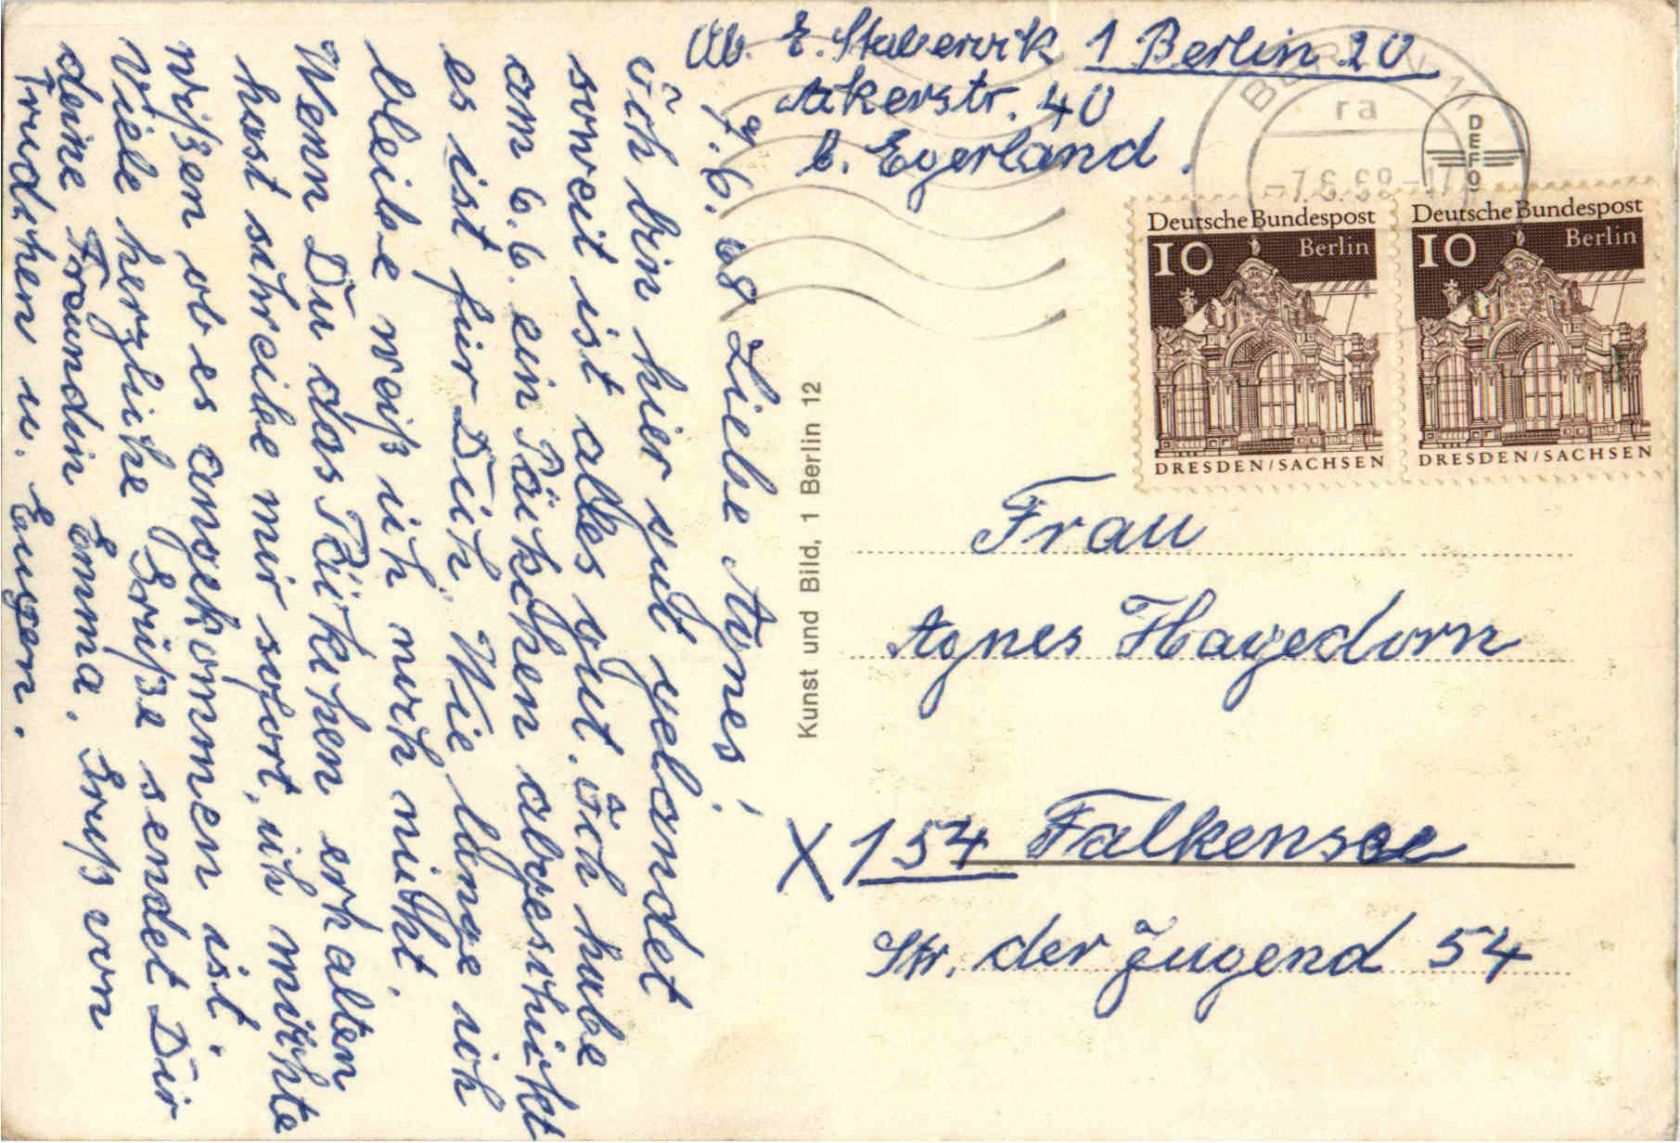 Ab. E. Staberock 1 Berlin 20
Ackerstr. 40
b. Egerland.
7.6.68 Liebe Agnes!
ich bin hier gut gelandet
soweit ist alles gut. ich habe
am 6.6. ein Päckchen abgeschickt
es ist für Dich. Wie lange ich
bleibe weiß ich noch nicht.
Wenn Du das Päckchen erhalten
hast schreibe mir sofort, ich möchte
wißen ob es angekommen ist.
Viele herzliche Grüße sendet Dir
deine Freundin Emma. Gruß von
Trudchen u. Eugen.
Kunst und Bild, 1 Berlin 12
BERLIN 11
ra
-7.6.68-17
Deutsche Bundespost
10 Berlin
DRESDEN/SACHSEN
Deutsche Bundespost
10 Berlin
DRESDEN/SACHSEN
Frau
Agnes Hagedorn
X 154 Falkensee
Str. der Jugend 54